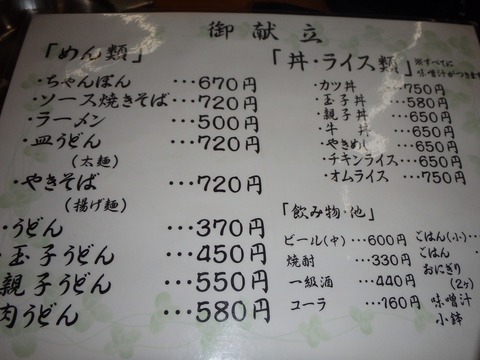 御献立
「めん類」
・ちゃんぽん …670円
・ソース焼きそば…720円
・ラーメン …500円
・皿うどん …720円
(太麺)
・やきそば …720円
(揚げ麺)
・うどん …370円
・玉子うどん …450円
親子うどん …550円
肉うどん …580円
「丼・ライス類」
※すべてに
味噌汁がつきます
・カツ丼 …750円
・玉子丼 …580円
・親子丼 …650円
・牛丼 …650円
・やきめし …650円
・チキンライス…650円
・オムライス …750円
「飲み物・池」
ビール(中) …600円
焼酎 …330円
一級酒 …440円
コーラ …160円
ごはん(小)…
ごはん
おにぎり
(2ヶ)
味噌汁
小鉢